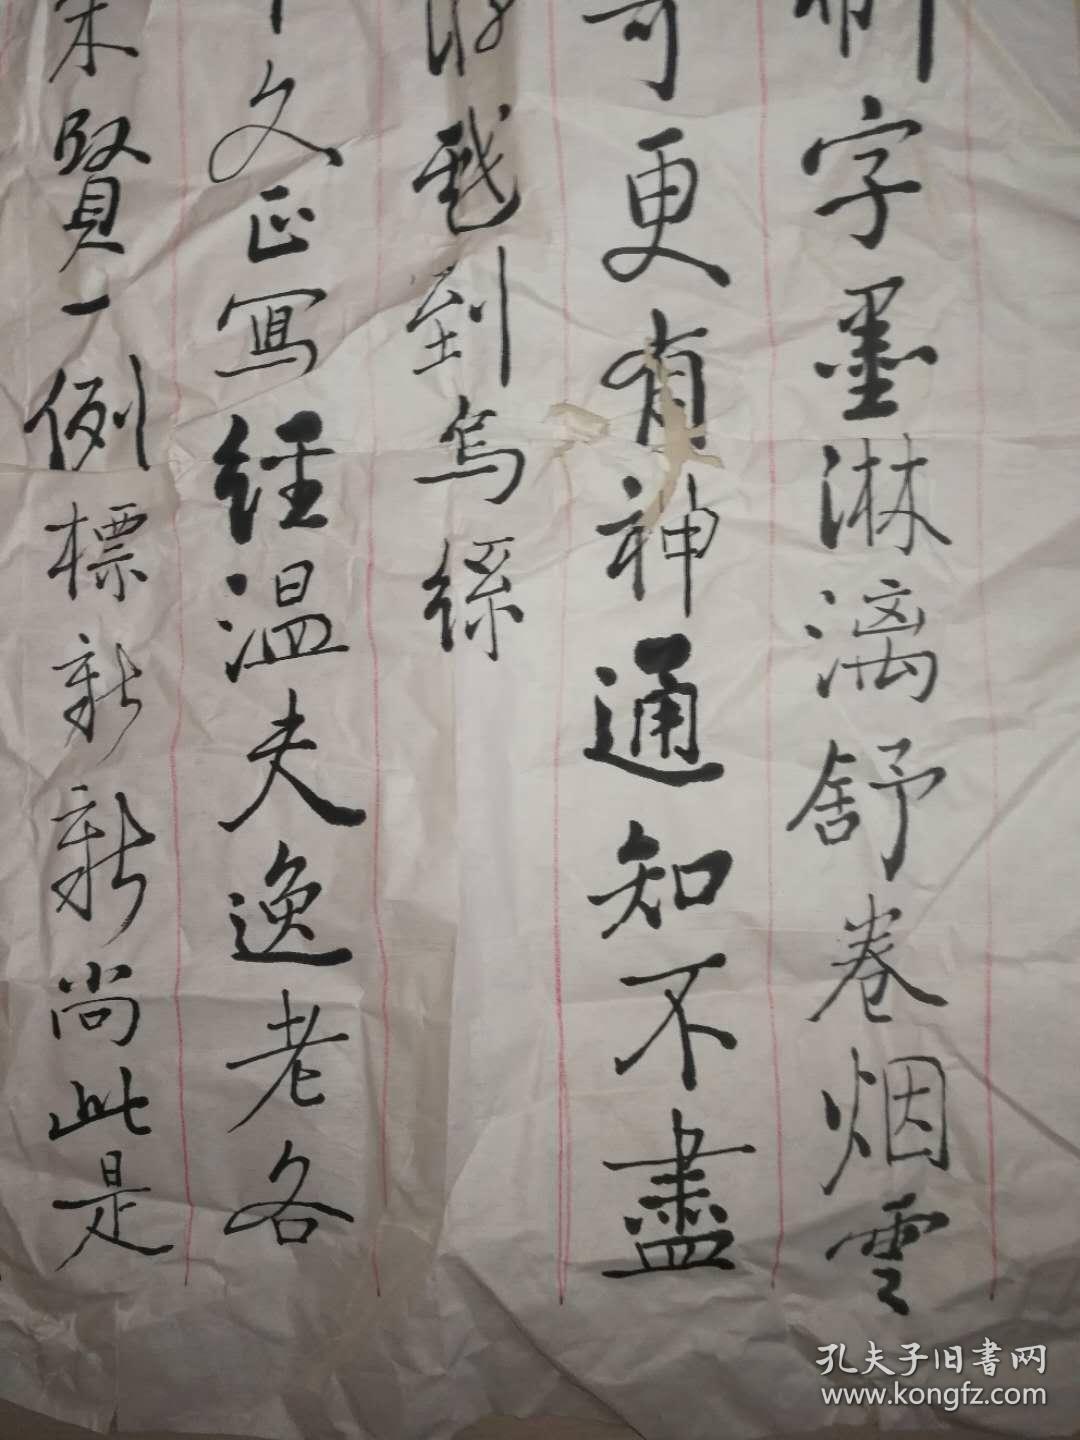 字墨淋漓舒卷烟雲
可更有神通知不盡
戲到烏絲
文正寫經温夫逸老各
宋賢一例標新新尚此是
孔夫子旧書网
www.kongfz.com